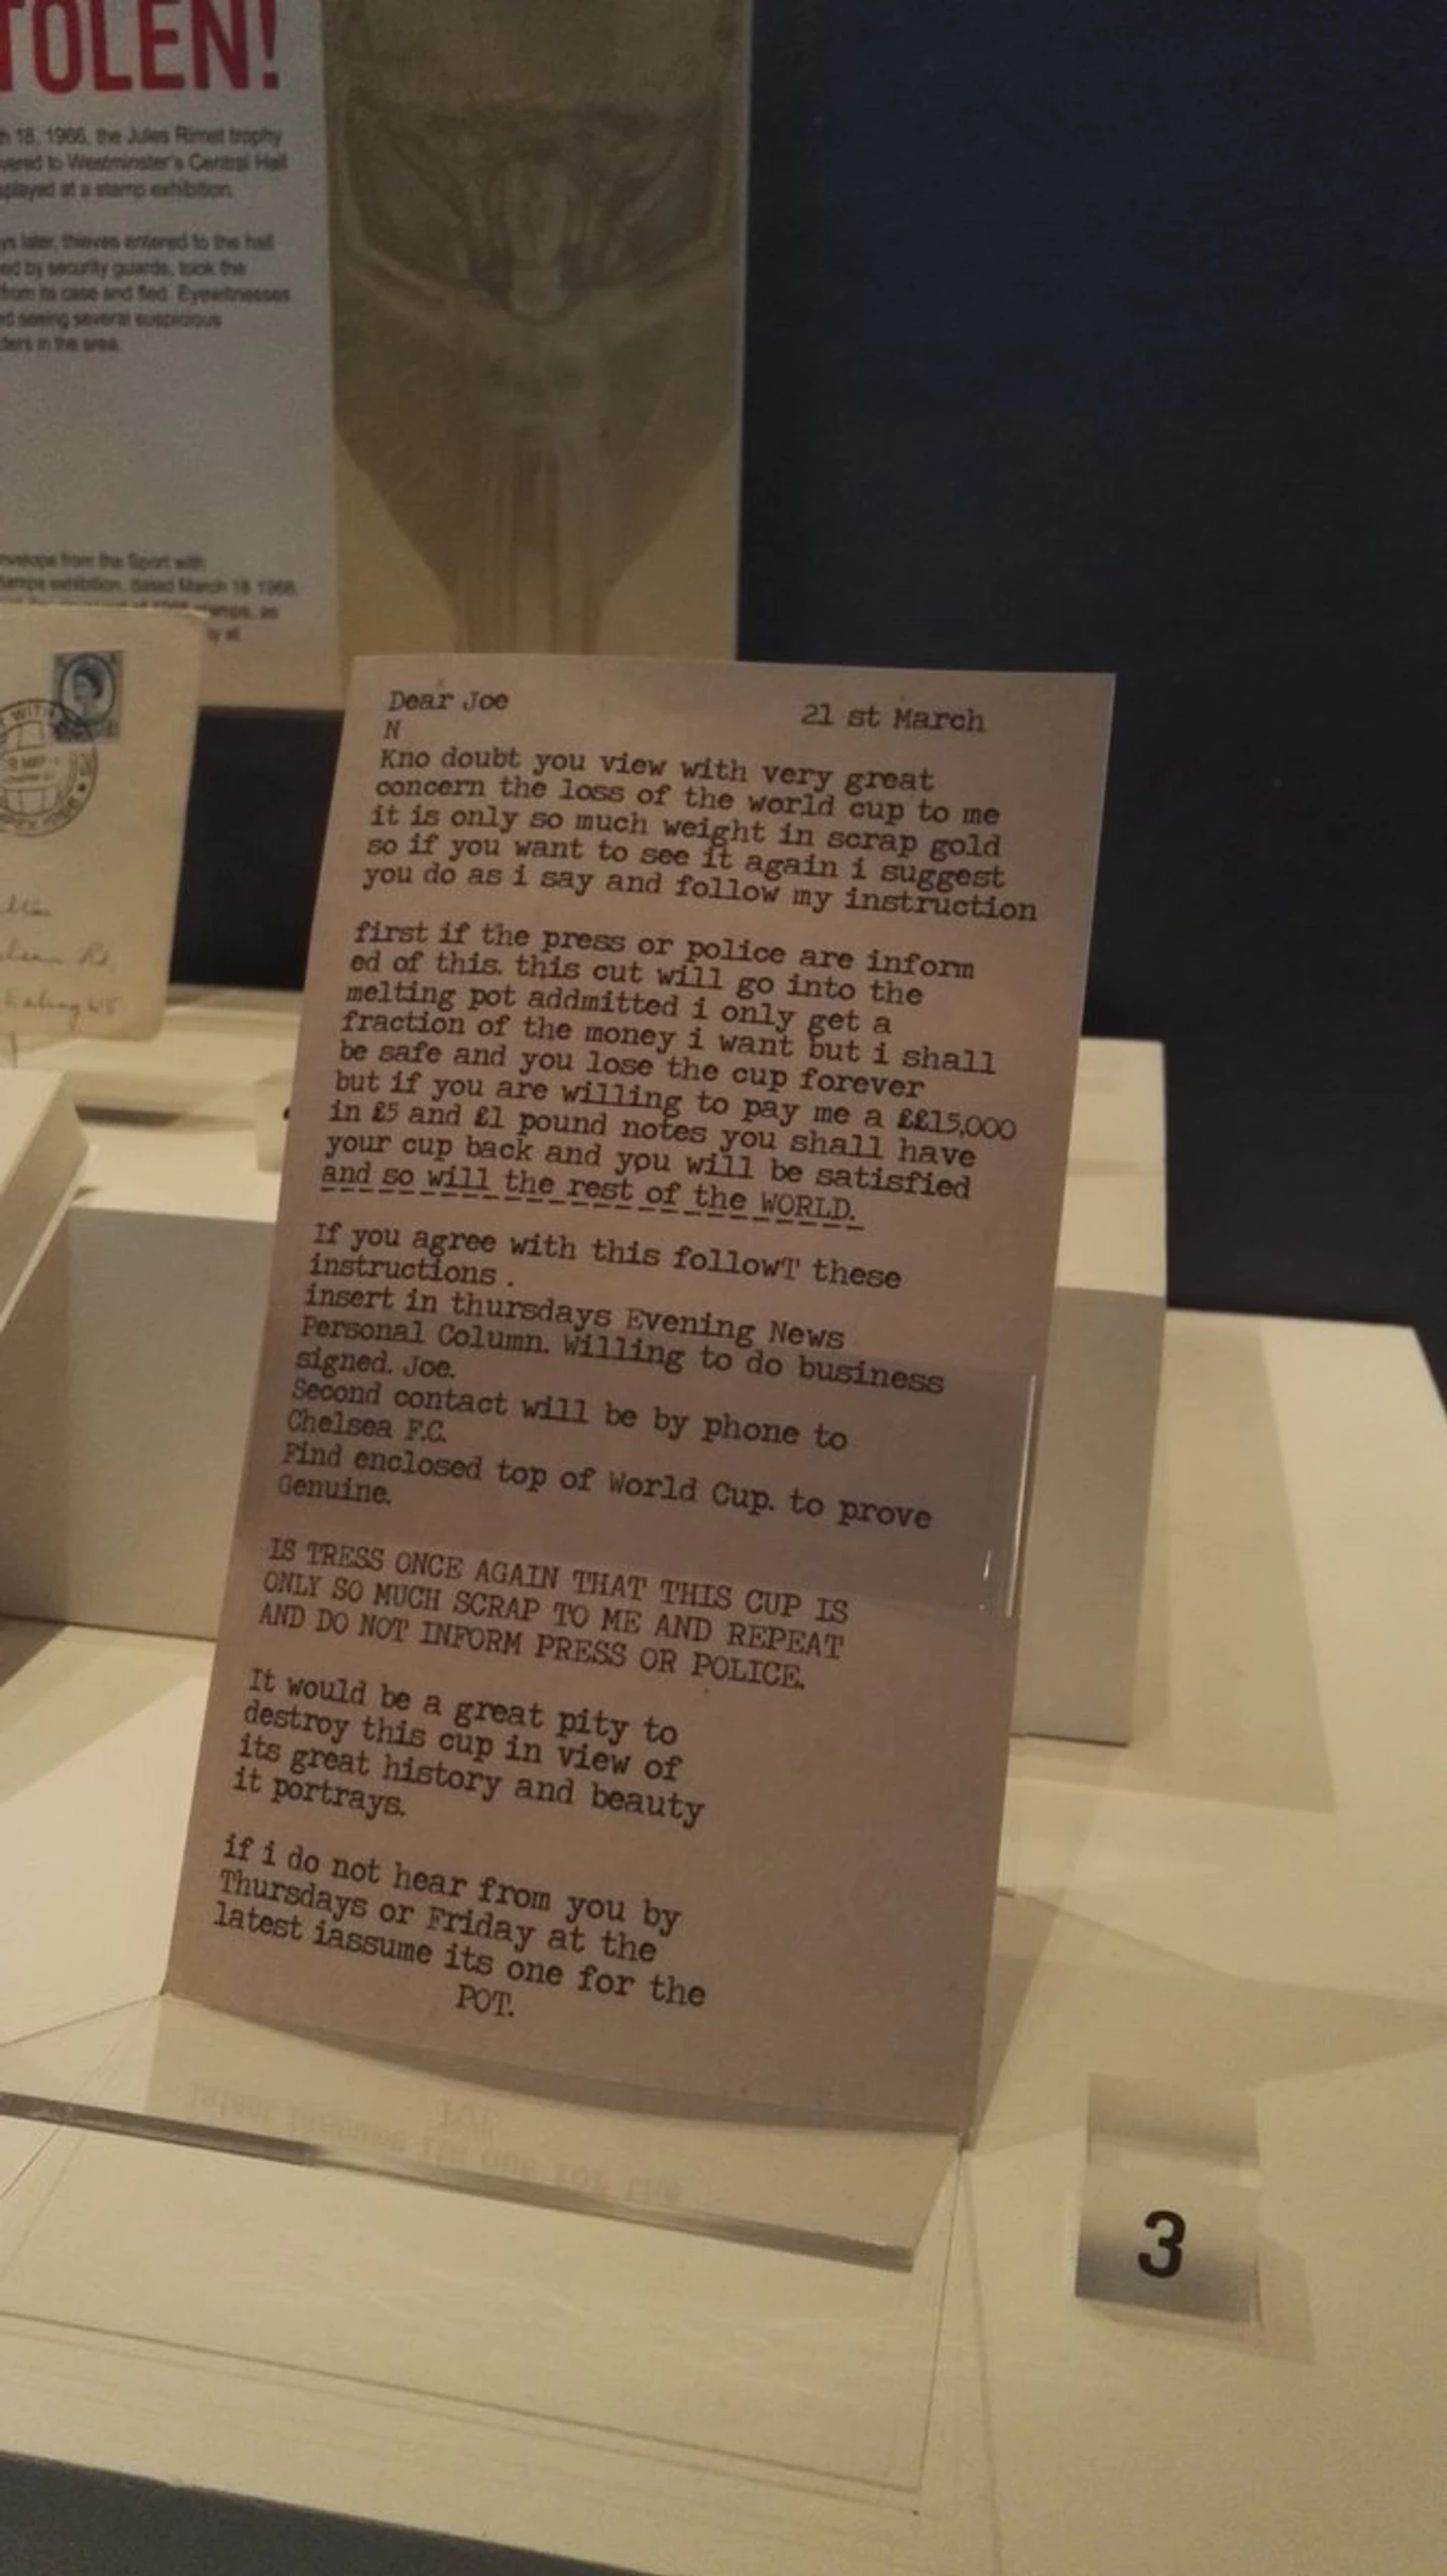 TOLEN!
18, 1966, the Jules Rimet trophy
vered to Westminster's Central Hall
splayed at a stamp exhibition.
ys later, thieves entered to the hall
ed by security guards, took the
from its case and fled. Eyewitnesses
d seeing several suspicious
ders in the area.
nvelope from the Sport with
tamps exhibition, dated March 18 1966.
Dear Joe
21 st March
N
Kno doubt you view with very great
concern the loss of the world cup to me
it is only so much weight in scrap gold
so if you want to see it again i suggest
you do as i say and follow my instruction
first if the press or police are inform
ed of this. this cut will go into the
melting pot addmitted i only get a
fraction of the money i want but i shall
be safe and you lose the cup forever
but if you are willing to pay me a ££15,000
in £5 and £1 pound notes you shall have
your cup back and you will be satisfied
and so will the rest of the WORLD.
If you agree with this followT these
instructions .
insert in thursdays Evening News
Personal Column. Willing to do business
signed. Joe.
Second contact will be by phone to
Chelsea F.C.
Find enclosed top of World Cup. to prove
Genuine.
IS TRESS ONCE AGAIN THAT THIS CUP IS
ONLY SO MUCH SCRAP TO ME AND REPEAT
AND DO NOT INFORM PRESS OR POLICE.
It would be a great pity to
destroy this cup in view of
its great history and beauty
it portrays.
if i do not hear from you by
Thursdays or Friday at the
latest iassume its one for the
POT.
3